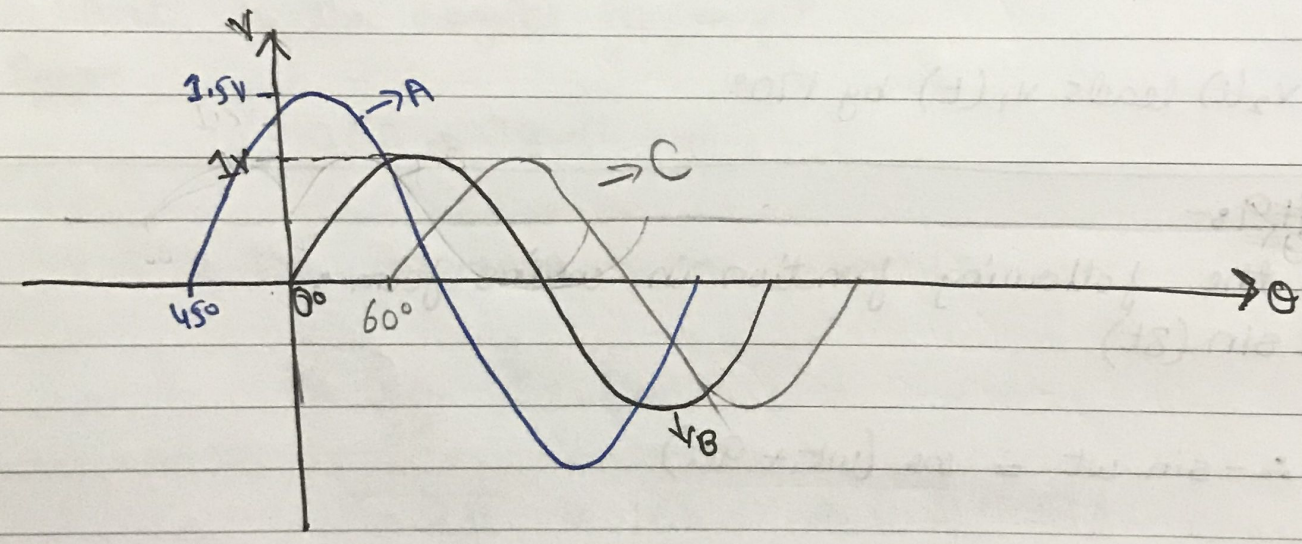 V
1.5V
A
1V
C
45°
0°
60°
θ
B